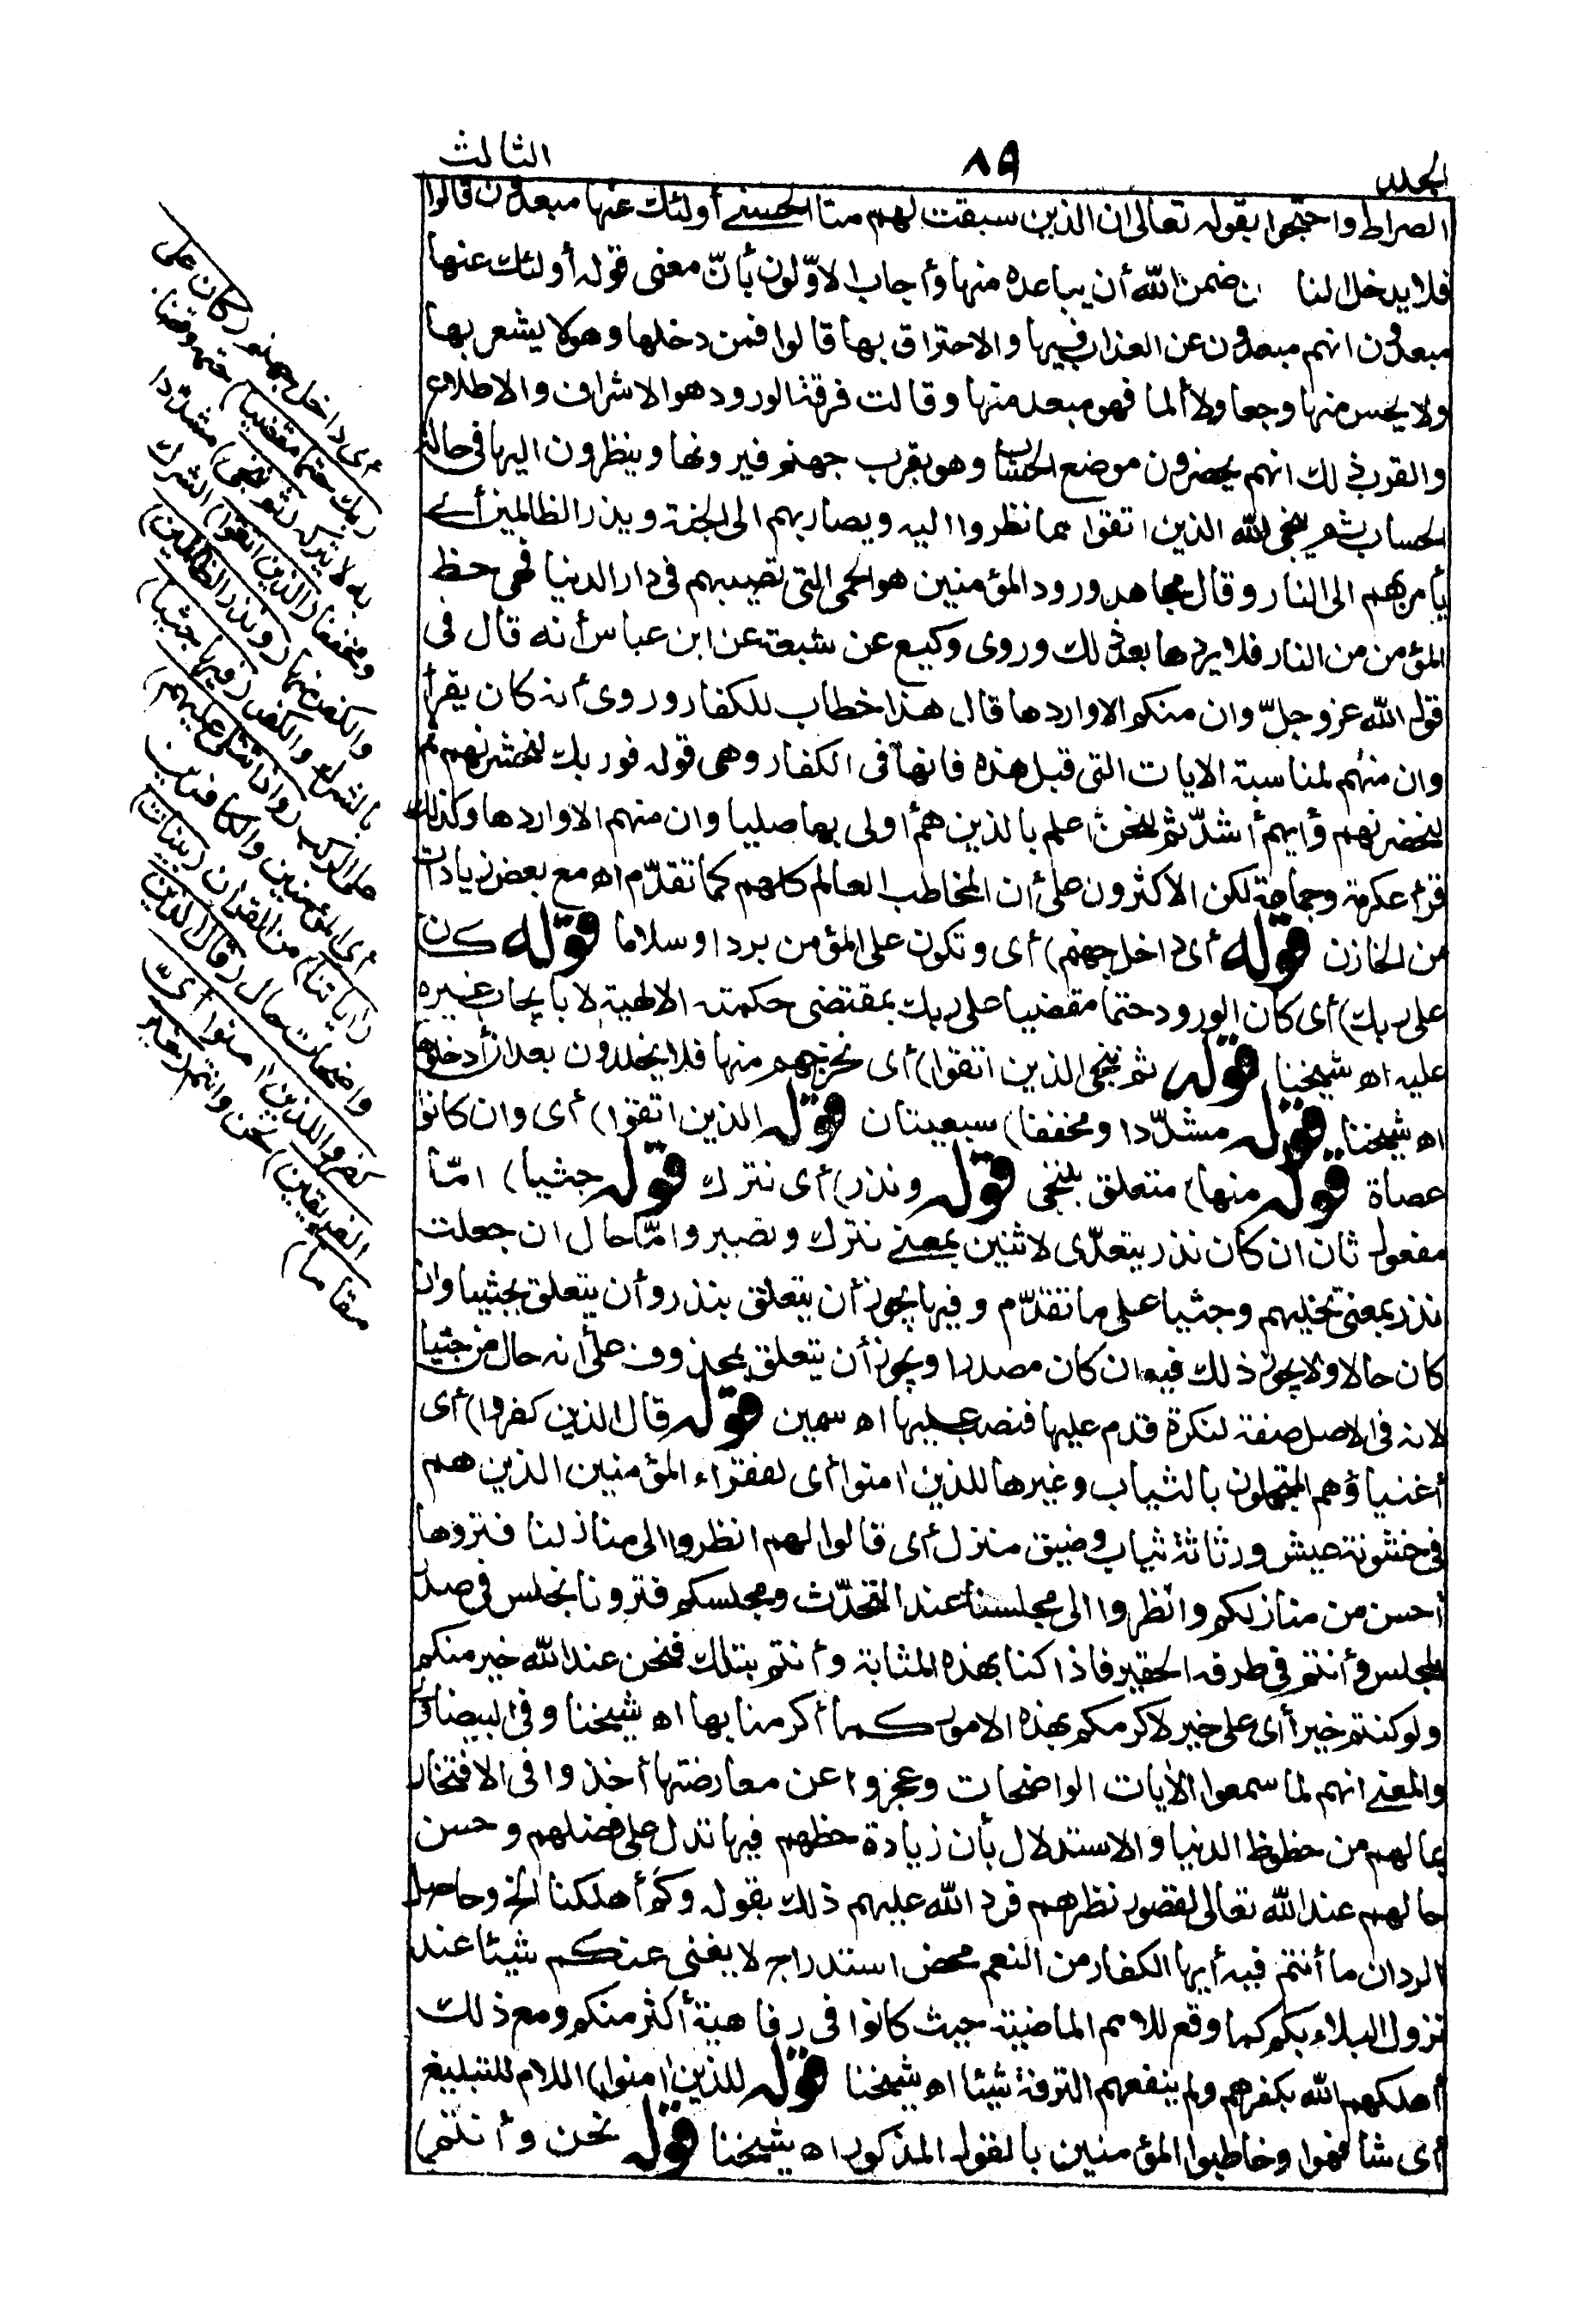 الجلد
٨٩
الثالث
الصراط واحتجوا بقوله تعالى ان الذين سبقت لهم منا الحسنى أولئك عنها مبعدون قالوا
فلا يدخل النا ن ضمن الله أن يباعده منها وأجاب الاوّلون بأنّ معنى قوله أولئك عنها
مبعدون انهم مبعدون عن العذاب فيها والاحتراق بها قالوا فمن دخلها وهو لا يشعر بها
ولا يحس منها وجعا ولا ألما فهو مبعد منها وقالت فرقة الورود هو الاشراف والاطلاع
والقرب ذلك انهم يحضرون موضع الحساب وهو بقرب جهنم فيرونها وينظرون اليها فى حالة
الحساب ثم ينجى الله الذين اتقوا مما نظروا اليه ويصار بهم الى الجنة ويذر الظالمين أى
يأمر بهم الى النار وقال مجاهد ورود المؤمنين هو الحمى التى تصيبهم فى دار الدنيا فهى حظ
المؤمن من النار فلا يردها بعد ذلك وروى وكيع عن شعبة عن ابن عباس أنه قال فى
قول الله عز وجلّ وان منكم الا واردها قال هذا خطاب للكفار وروى أنه كان يقرأ
وان منهم لمناسبة الايات التى قبل هذه فانها فى الكفار وهى قوله فوربك لنحشرنهم ثم
لنحضرنهم وأيهم أشدّ ثم لنحن اعلم بالذين هم أولى بها صليا وان منهم الا واردها وكذلك
قرأ عكرمة وجماعة لكن الأكثرون على أن المخاطب العالم كلهم كما تقدّم اه مع بعض زيادات
من الخازن قوله أى داخل جهنم) أى وتكون على المؤمن بردا وسلاما قوله كان
على ربك) أى كان الورود حتما مقضيا على ربك بمقتضى حكمته الالهية لا بايجاب غيره
عليه اه شيخنا قوله ثم ننجى الذين اتقوا) أى نخرجهم منها فلا يخلدون بعد ان أدخلوها
اه شيخنا قوله مشدّدا ومخففا) سبعيتان قوله الذين اتقوا) أى وان كانوا
عصاة قوله منها) متعلق بننجى قوله ونذر) أى نترك قوله جثيا) امّا
مفعول ثان ان كان نذر يتعدّى لاثنين بمعنى نترك ونصير وامّا حال ان جعلت
نذر بمعنى نخليهم وجثيا على ما تقدّم وفيها يجوز أن يتعلق بنذر وأن يتعلق بجثيا وان
كان حالا ولا يجوز ذلك فيه ان كان مصدرا ويجوز أن يتعلق بمحذوف على أنه حال من جثيا
لانه فى الاصل صفة لنكرة قدم عليها فنصب عليها اه سمين قوله قال الذين كفروا) أى
أغنياؤهم المتجملون بالثياب وغيرها للذين امنوا أى لفقراء المؤمنين الذين هم
فى خشونة عيش ورثاثة ثياب وضيق منزل أى قالوا لهم انظروا الى منازلنا فتروها
أحسن من منازلكم وانظروا الى مجلسنا عند التحدّث ومجلسكم فترونا نجلس فى صدر
المجلس وأنتم فى طرفه الحقير فاذا كنا بهذه المثابة وأنتم بتلك فنحن عند الله خير منكم
ولو كنتم خيرا أى على خير لاكرمكم بهذه الامور كما أكرمنا بها اه شيخنا وفى البيضاوى
والمعنى انهم لما سمعوا الأيات الواضحات وعجزوا عن معارضتها أخذوا فى الافتخار
بما لهم من حظوظ الدنيا والاستدلال بأن زيادة حظهم فيها تدل على فضلهم وحسن
حالهم عند الله تعالى لقصور نظرهم فرد الله عليهم ذلك بقوله وكم أهلكنا الخ وحاصل
الرد ان ما أنتم فيه أيها الكفار من النعم محض استدراج لا يغنى عنكم شيئا عند
نزول البلاء بكم كما وقع للامم الماضية حيث كانوا فى رفاهية أكثر منكم ومع ذلك
أهلكهم الله بكفرهم ولم ينفعهم الترفة شيئا اه شيخنا قوله للذين امنوا) اللام للتبليغ
أى شافهوا وخاطبوا المؤمنين بالقول المذكور اه شيخنا قوله نحن وأنتم)
أى داخل جهنم (كان على
ربك حتما مقضيا) حتمه وقضى
به لا يتركه (ثم ننجى) مشدّدا
ومخففا (الذين اتقوا) الشرك
والكفر منها (ونذر الظالمين)
بالشرك والكفر (فيها جثيا)
على الركب (واذا تتلى عليهم)
أى المؤمنين والكافرين
(اياتنا) من القران (بينات)
واضحات حال (قال الذين
كفروا للذين امنوا أى
الفريقين) نحن وانتم (خير
مقاما)